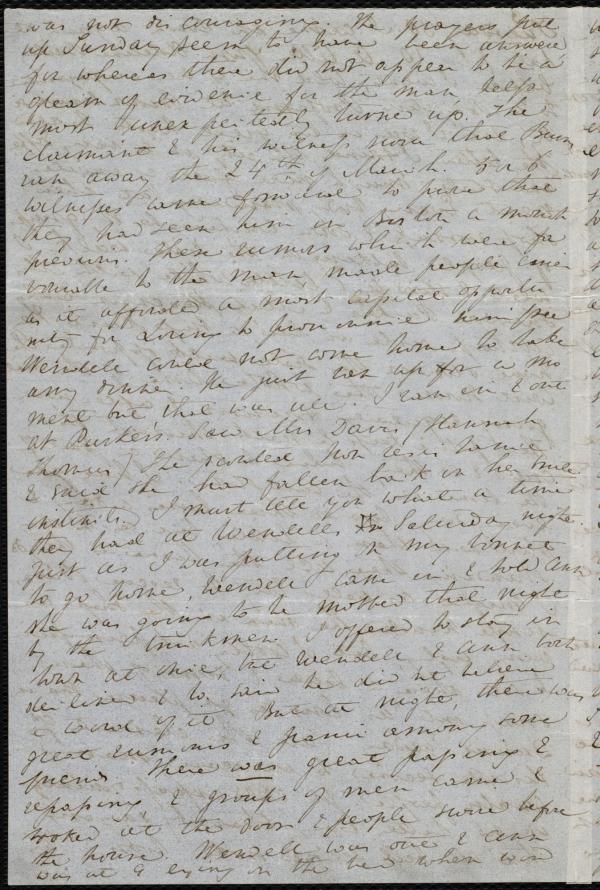 was not discouraging. The prayers put
up Sunday seem to have been answered
for whereas there did not appear to be a
gleam of evidence for the man, helps
most unexpectedly turned up. The
claimant & his witness swore that Burns
ran away the 24th of March. 5 or 6
witnesses came forward to prove that
they had seen him in Boston a month
previous. These rumors which were fa
vorable to the man, made people
as it affords a most capital opportu
nity for Loring to pronounce him free
Wendell could not come home to take
any dinner He just ran up for a mo
ment but that was all. I ran in & out
at Parker's. Saw Mrs Davis (Hannah
Thomas) She scouted Non resistance
& said she had fallen back on her brute
instincts. I must tell you what a time
they had at Wendells Saturday night.
Just as I was putting on my bonnet
to go home, Wendell came in & told Ann
she was going to be mobbed that night
by the truckmen I offered to stay in
town at once, but Wendell & Ann both
declined & W. said he did not believe
a word of it But at night, there was
great rumors & panic among some
friends There was great passing &
repassing & groups of men came &
looked at the door & people swore before
the house. Wendell was out & Ann
was at 9 in the bed when